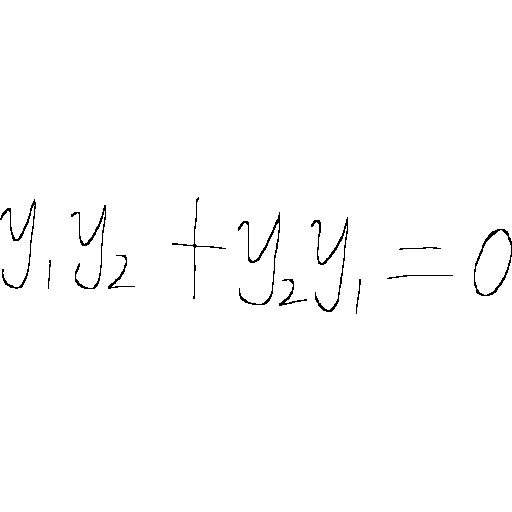 y₁y₂ + y₂y₁ = 0